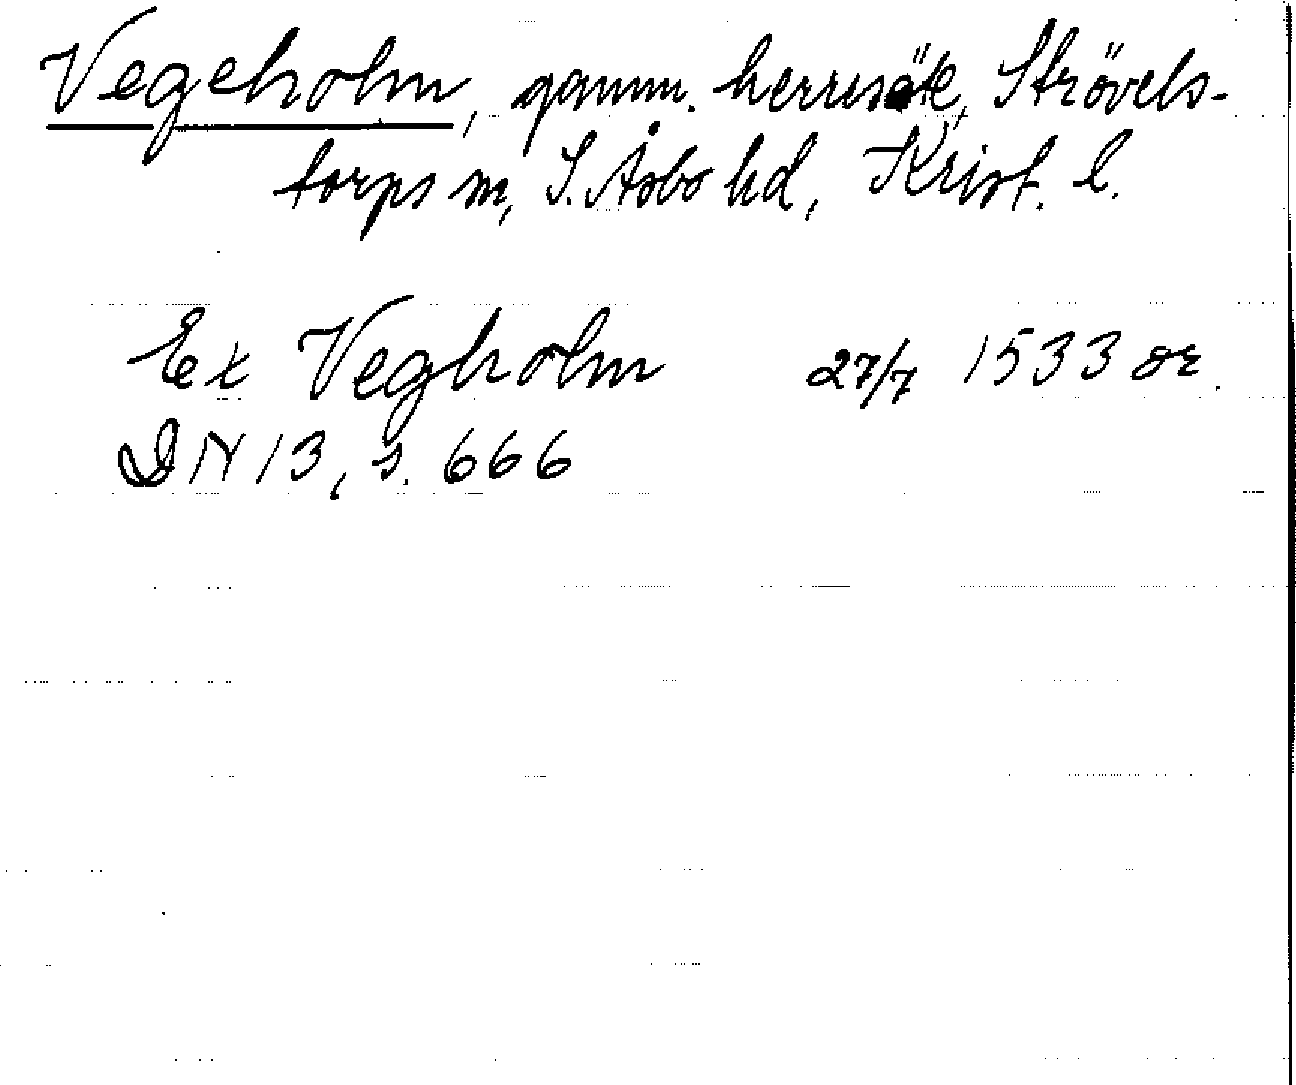 Vegeholm, gamm. herresäte, Strövels-
torps sn, S. Åsbo hd, Krist. l.
Ex Vegholm 27/7 1533 or.
DN 13, s. 666